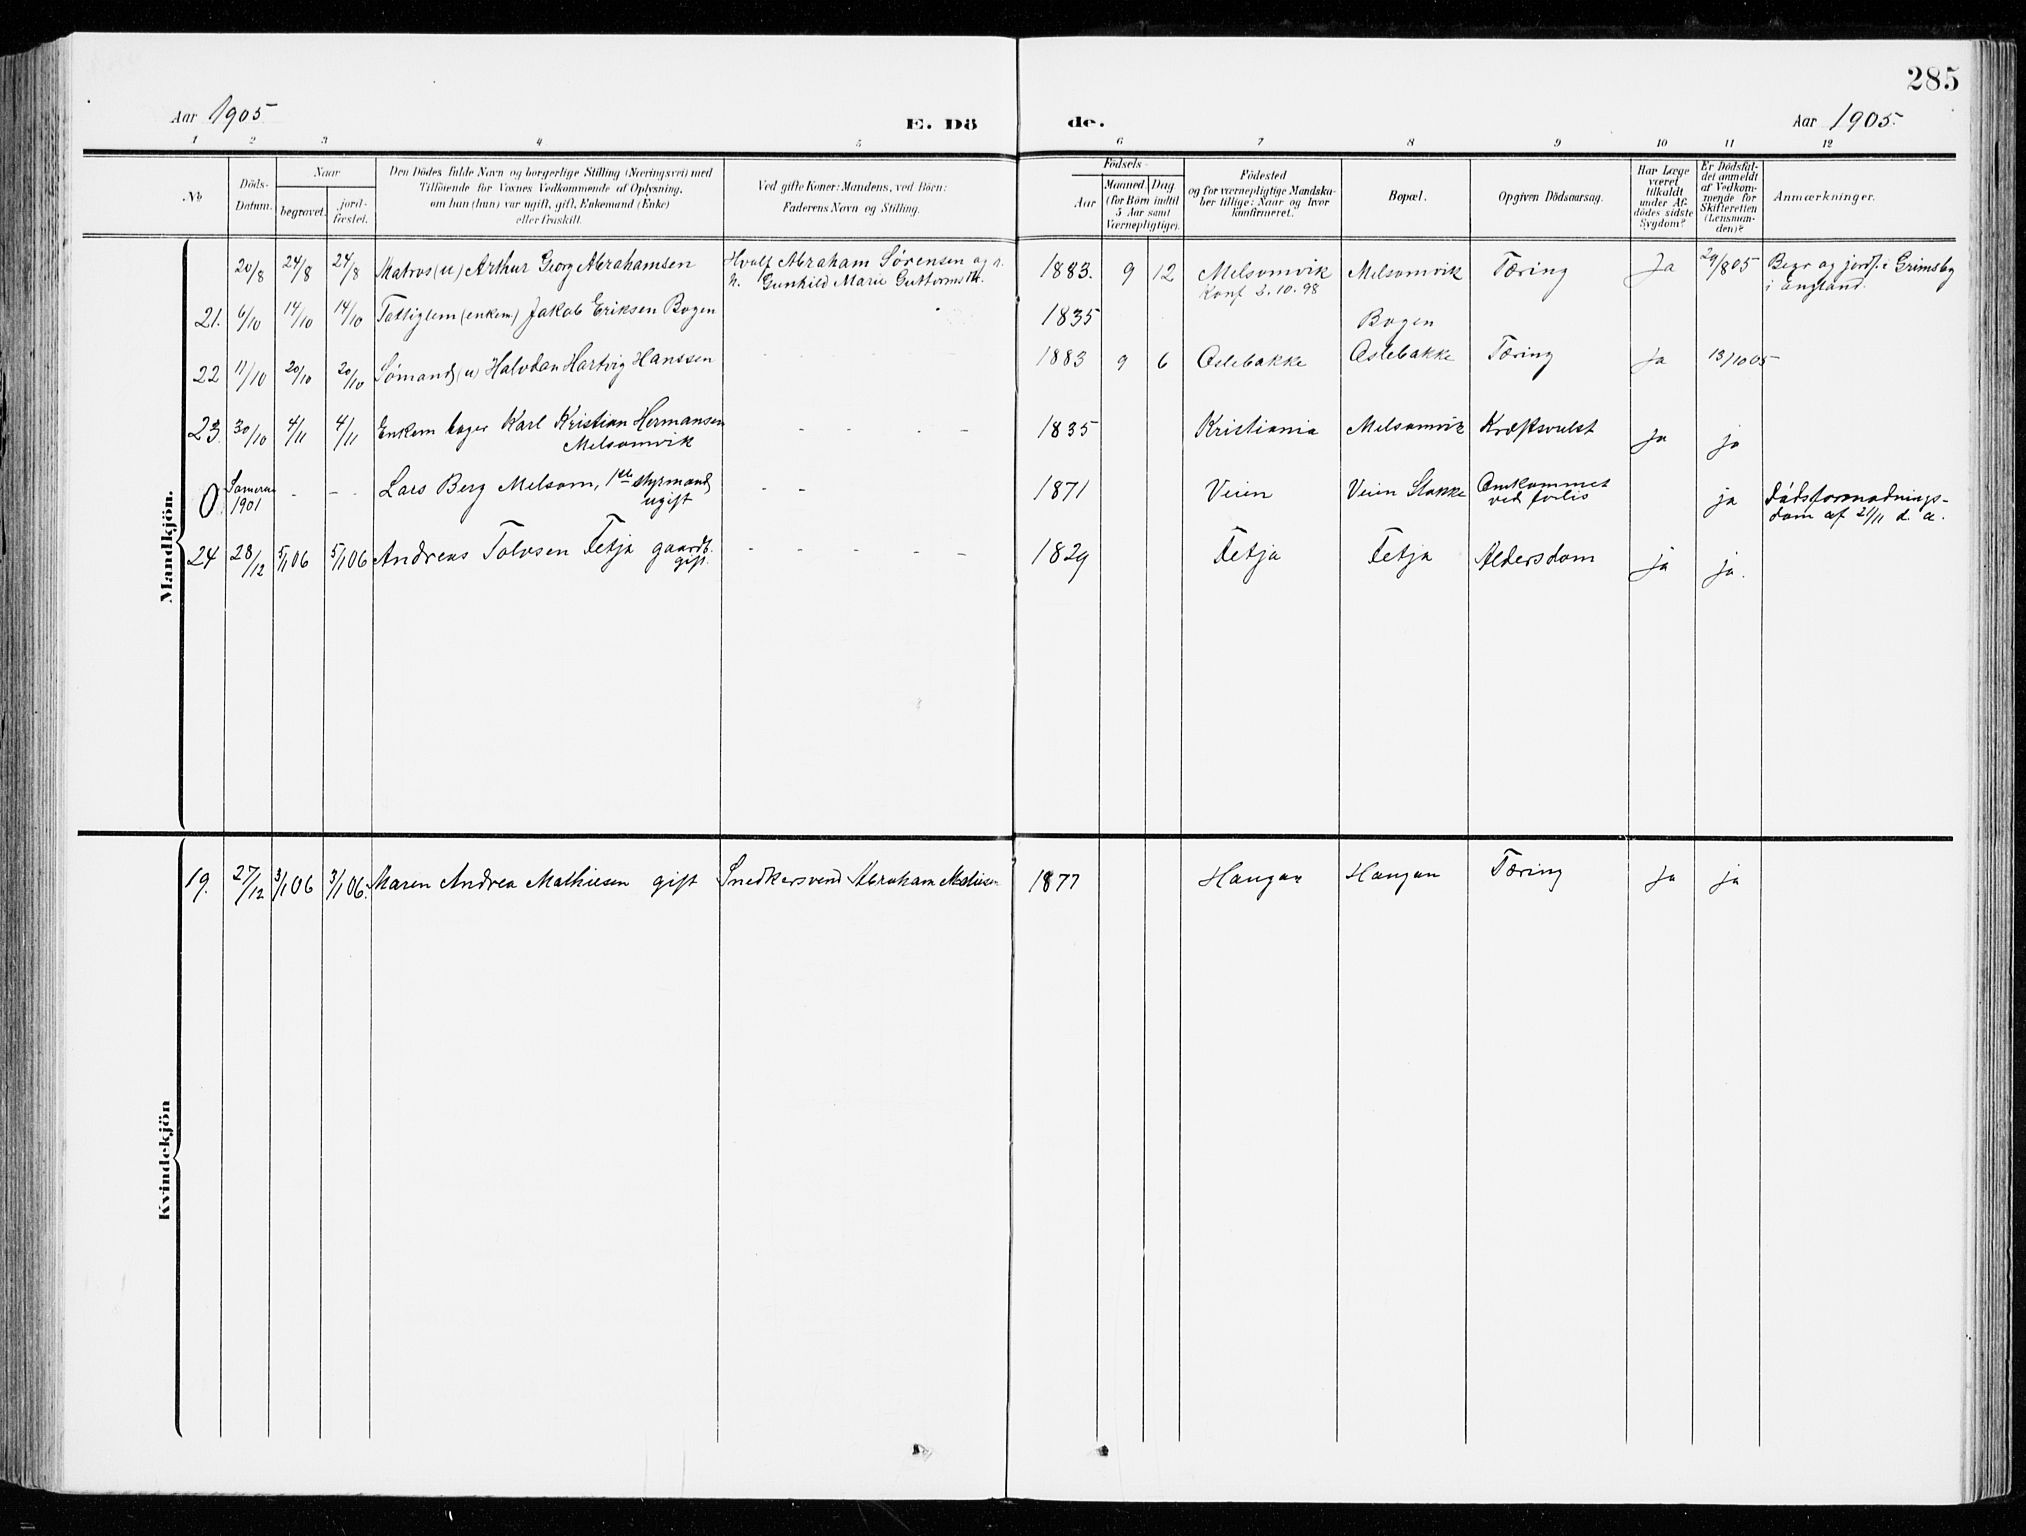 285
Aar 1905
E. Dö
de.
Aar 1905.
1 2 3 4 5 6 7 8 9 10 11 12
No
Döds-Datum.
Naar
begravet.
jord-fæstet.
Den Dödes fulde Navn og borgerlige Stilling (Næringsvei) med
Tilföiende for Voxnes Vedkommende af Oplysning,
om han (hun) var ugift, gift, Enkemand (Enke)
eller fraskilt.
Ved gifte Koner: Mandens, ved Börn:
Faderens Navn og Stilling.
Födsels-
Aar
Maaned Dag
(for Börn indtil
5 Aar samt
Værnepligtige).
Födested
og for værnepligtige Mandska-
ber tillige: Naar og hvor
konfirmeret.
Bopæl.
Opgiven Dödsaarsag.
Har Læge
været
tilkaldt
under Af-
dödes sidste
Sygdom?
Er Dödsfal-
det anmeldt
af Vedkom-
mende for
Skifteretten
(Lensman-
den)?
Anmærkninger.
Mandkjön.
20/8 24/8 24/8 Matros (u) Arthur Georg Abrahamsen Hvalf Abraham Sørensen og 1883. 9 12 Melsomvik Melsomvik Tæring Ja 29/8 05 Begr og jordf. i Grimsby
h. Gunhild Marie Guttormsdtr. Konf 2.10.98 i England.
21. 6/10 14/10 14/10 Fattiglem (enkem) Jakob Eriksen Bogen 1835 Bogen
22 11/10 20/10 20/10 Sømand (u) Halvdan Hartvig Hanssen - - - - 1883 9 6 Oslebakke Oslebakke Tæring Ja 13/10 05
23. 30/10 4/11 4/11 Enkem bager Karl Kristian Hermansen - - - - 1835 Kristiania Melsomvik Kræftsvulst Ja ja
Melsomvik
0. Someren 1901 - - - Lars Berg Melsom, 1ste styrmand, - - 1871 Veien Veien Stokke Omkommet ja Dødsformodnings-
ugift ved forlis dom af 21/11 d. a.
24 28/12 5/1 06 5/1 06 Andreas Tolvsen Fetja gaardb. - - - - - 1829 Fetja Fetja Aldersdom ja ja.
gift.
Kvindekjön
19. 27/12 3/1 06 3/1 06. Maren Andrea Mathiesen gift Snedkersvend Abraham Mathiesen 1877 Haugan Haugan Tæring ja ja